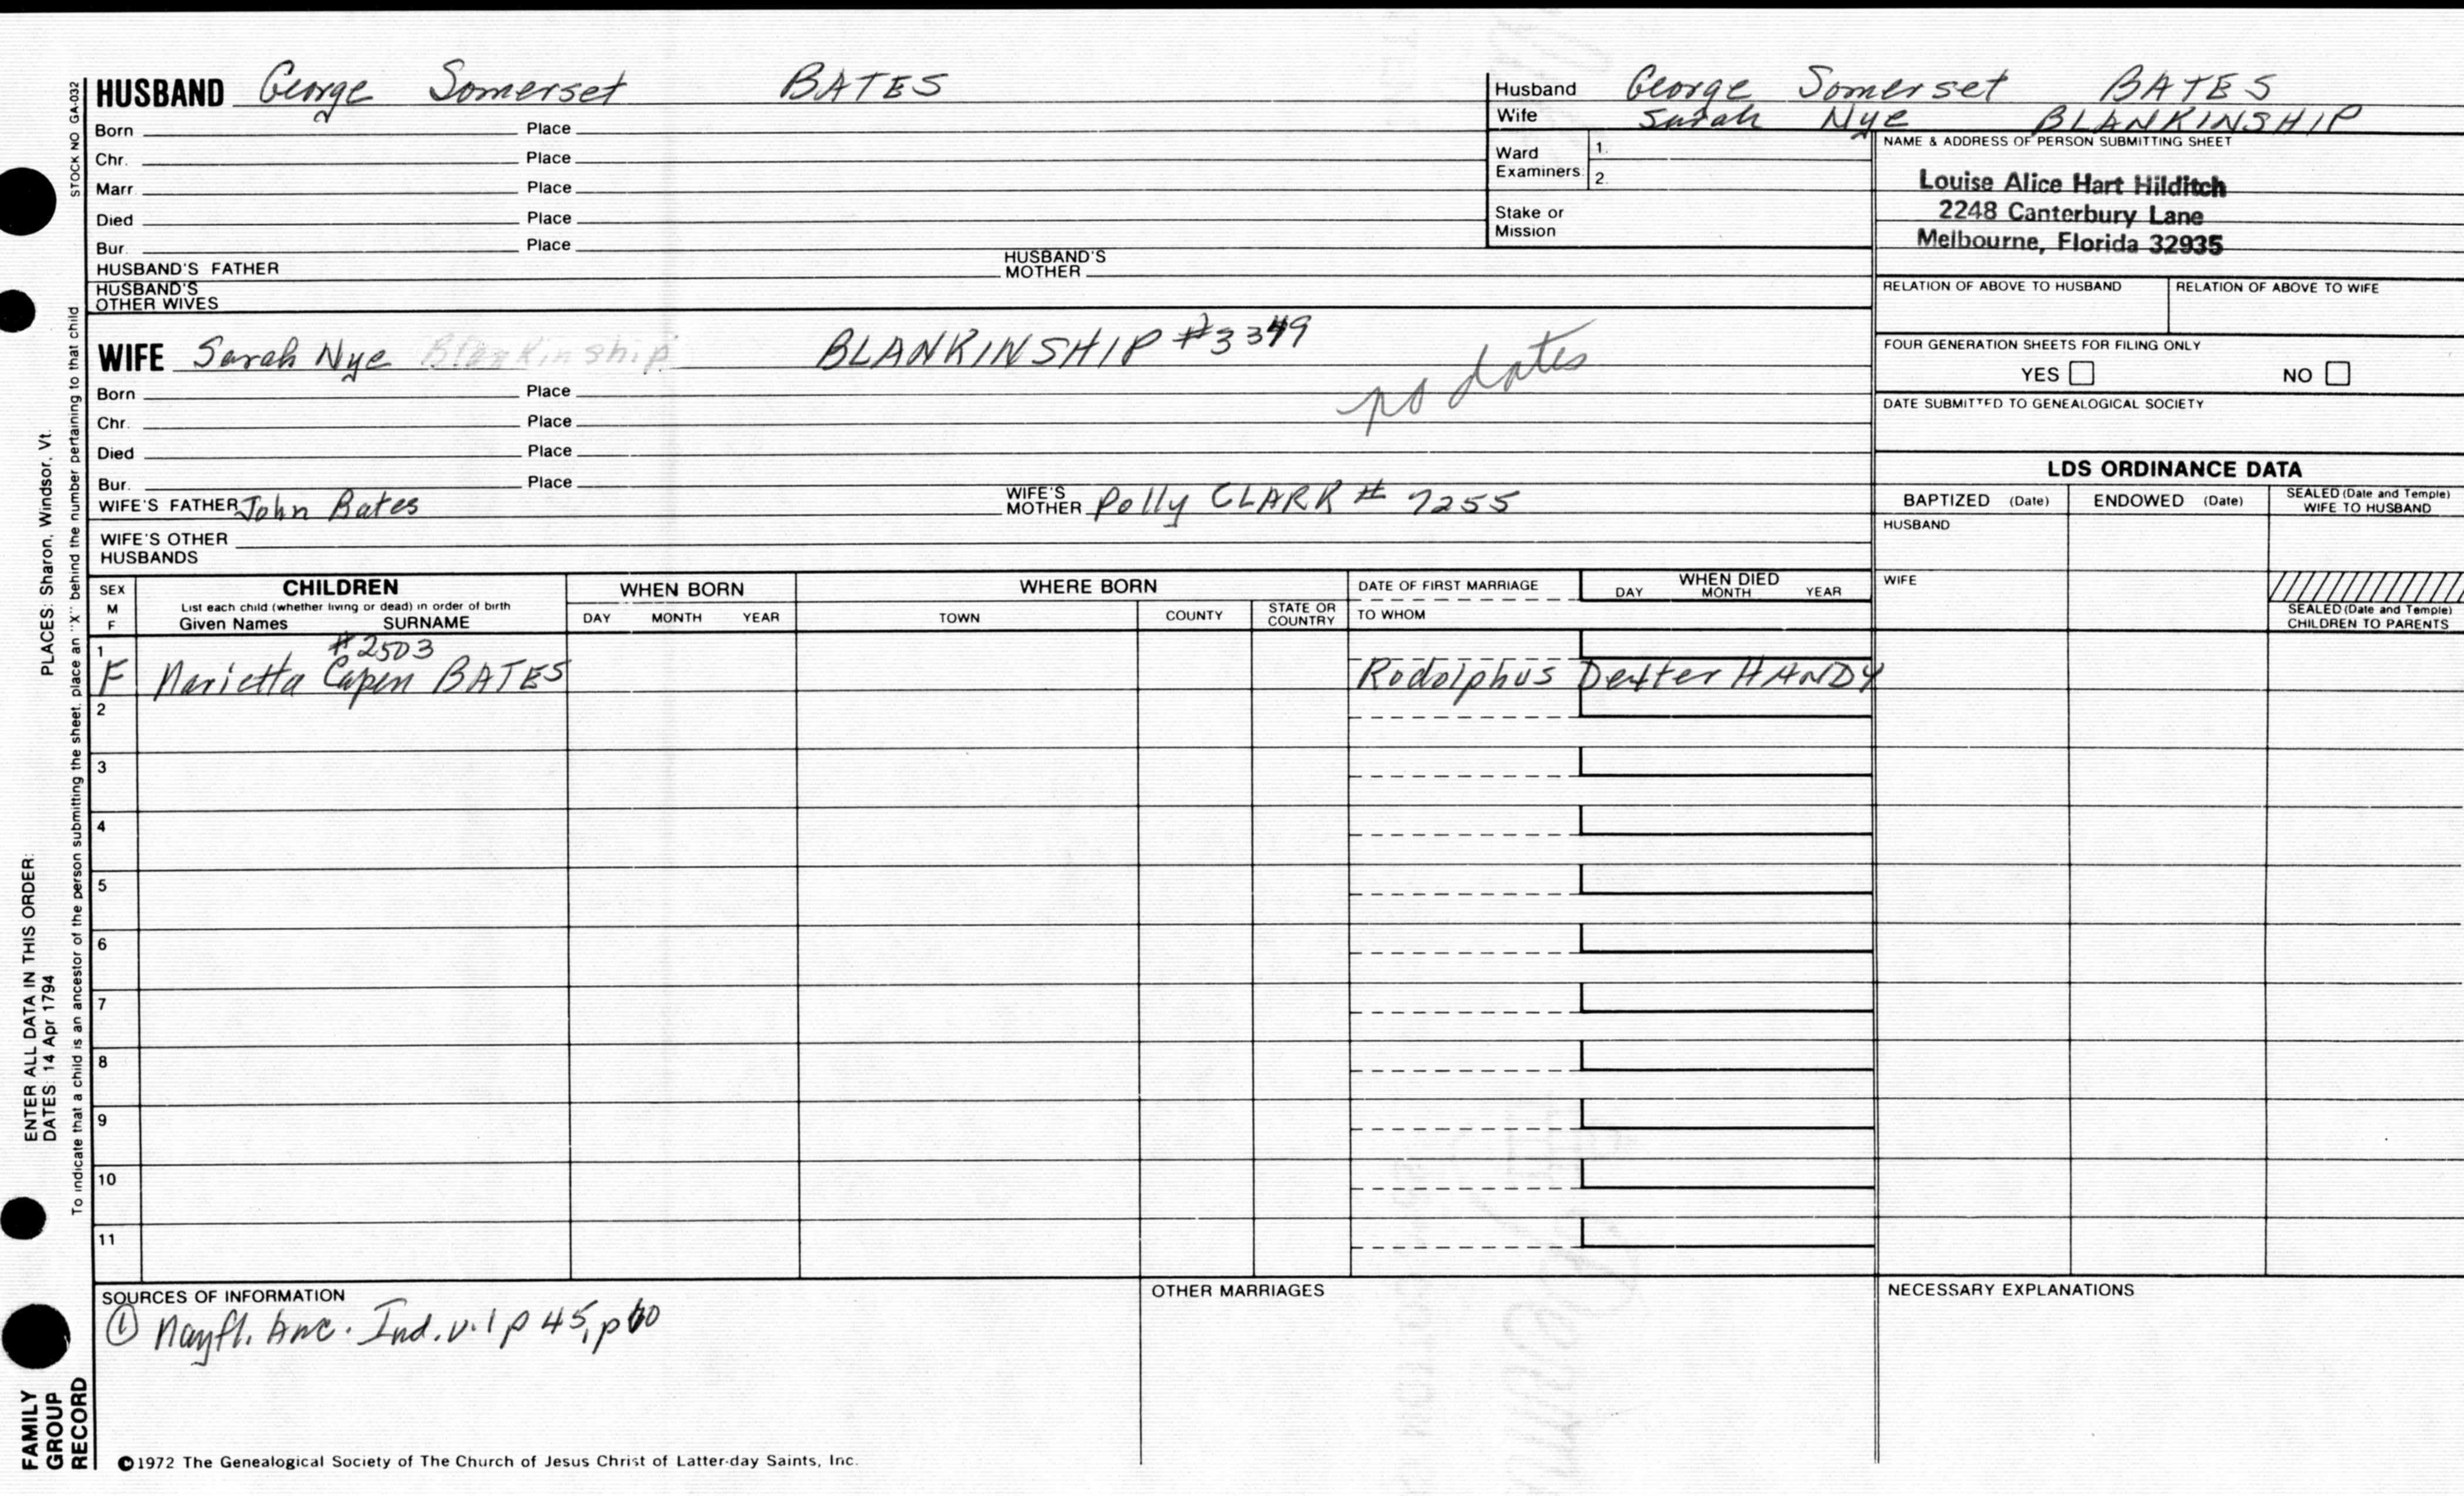 HUSBAND George Somerset BATES
Born Place
Chr. Place
Marr. Place
Died Place
Bur. Place
HUSBAND'S FATHER HUSBAND'S MOTHER
HUSBAND'S OTHER WIVES
Husband George Somerset BATES
Wife Sarah Nye BLANKINSHIP
Ward Examiners 1. 2.
Stake or Mission
NAME & ADDRESS OF PERSON SUBMITTING SHEET
Louise Alice Hart Hilditch
2248 Canterbury Lane
Melbourne, Florida 32935
RELATION OF ABOVE TO HUSBAND RELATION OF ABOVE TO WIFE
FOUR GENERATION SHEETS FOR FILING ONLY
YES NO
DATE SUBMITTED TO GENEALOGICAL SOCIETY
WIFE Sarah Nye Blankinship BLANKINSHIP #3349
no dates
Born Place
Chr. Place
Died Place
Bur. Place
WIFE'S FATHER John Bates WIFE'S MOTHER Polly CLARK # 7255
WIFE'S OTHER HUSBANDS
LDS ORDINANCE DATA
BAPTIZED (Date) ENDOWED (Date) SEALED (Date and Temple) WIFE TO HUSBAND
HUSBAND
WIFE
SEALED (Date and Temple) CHILDREN TO PARENTS
SEX M F
CHILDREN
List each child (whether living or dead) in order of birth
Given Names SURNAME
WHEN BORN
DAY MONTH YEAR
WHERE BORN
TOWN COUNTY STATE OR COUNTRY
DATE OF FIRST MARRIAGE
TO WHOM
WHEN DIED
DAY MONTH YEAR
1 #2503
F Marietta Capen BATES Rodolphus Dexter HANDY
2
3
4
5
6
7
8
9
10
11
SOURCES OF INFORMATION
① Mayfl. Anc. Ind. v.1 p 45, p 60
OTHER MARRIAGES
NECESSARY EXPLANATIONS
©1972 The Genealogical Society of The Church of Jesus Christ of Latter-day Saints, Inc.
STOCK NO GA-032
PLACES: Sharon, Windsor, Vt.
ENTER ALL DATA IN THIS ORDER:
DATES: 14 Apr 1794
To indicate that a child is an ancestor of the person submitting the sheet, place an "X" behind the number pertaining to that child
FAMILY
GROUP
RECORD